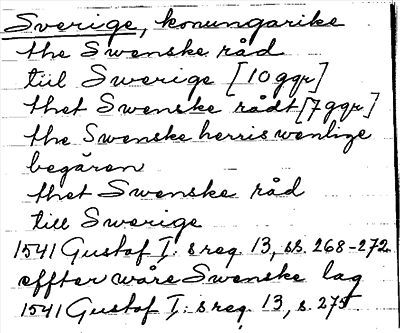 Sverige, konungarike
the Swenske råd
till Swerige [10 ggr]
thet Swenske rådt [7 ggr]
the Swenske herris wenlige
begären
thet Swenske råd
till Swerige
1541 Gustaf I: s reg. 13, ss. 268-272
effter wåre Swenske lag
1541 Gustaf I: s reg. 13, s. 275